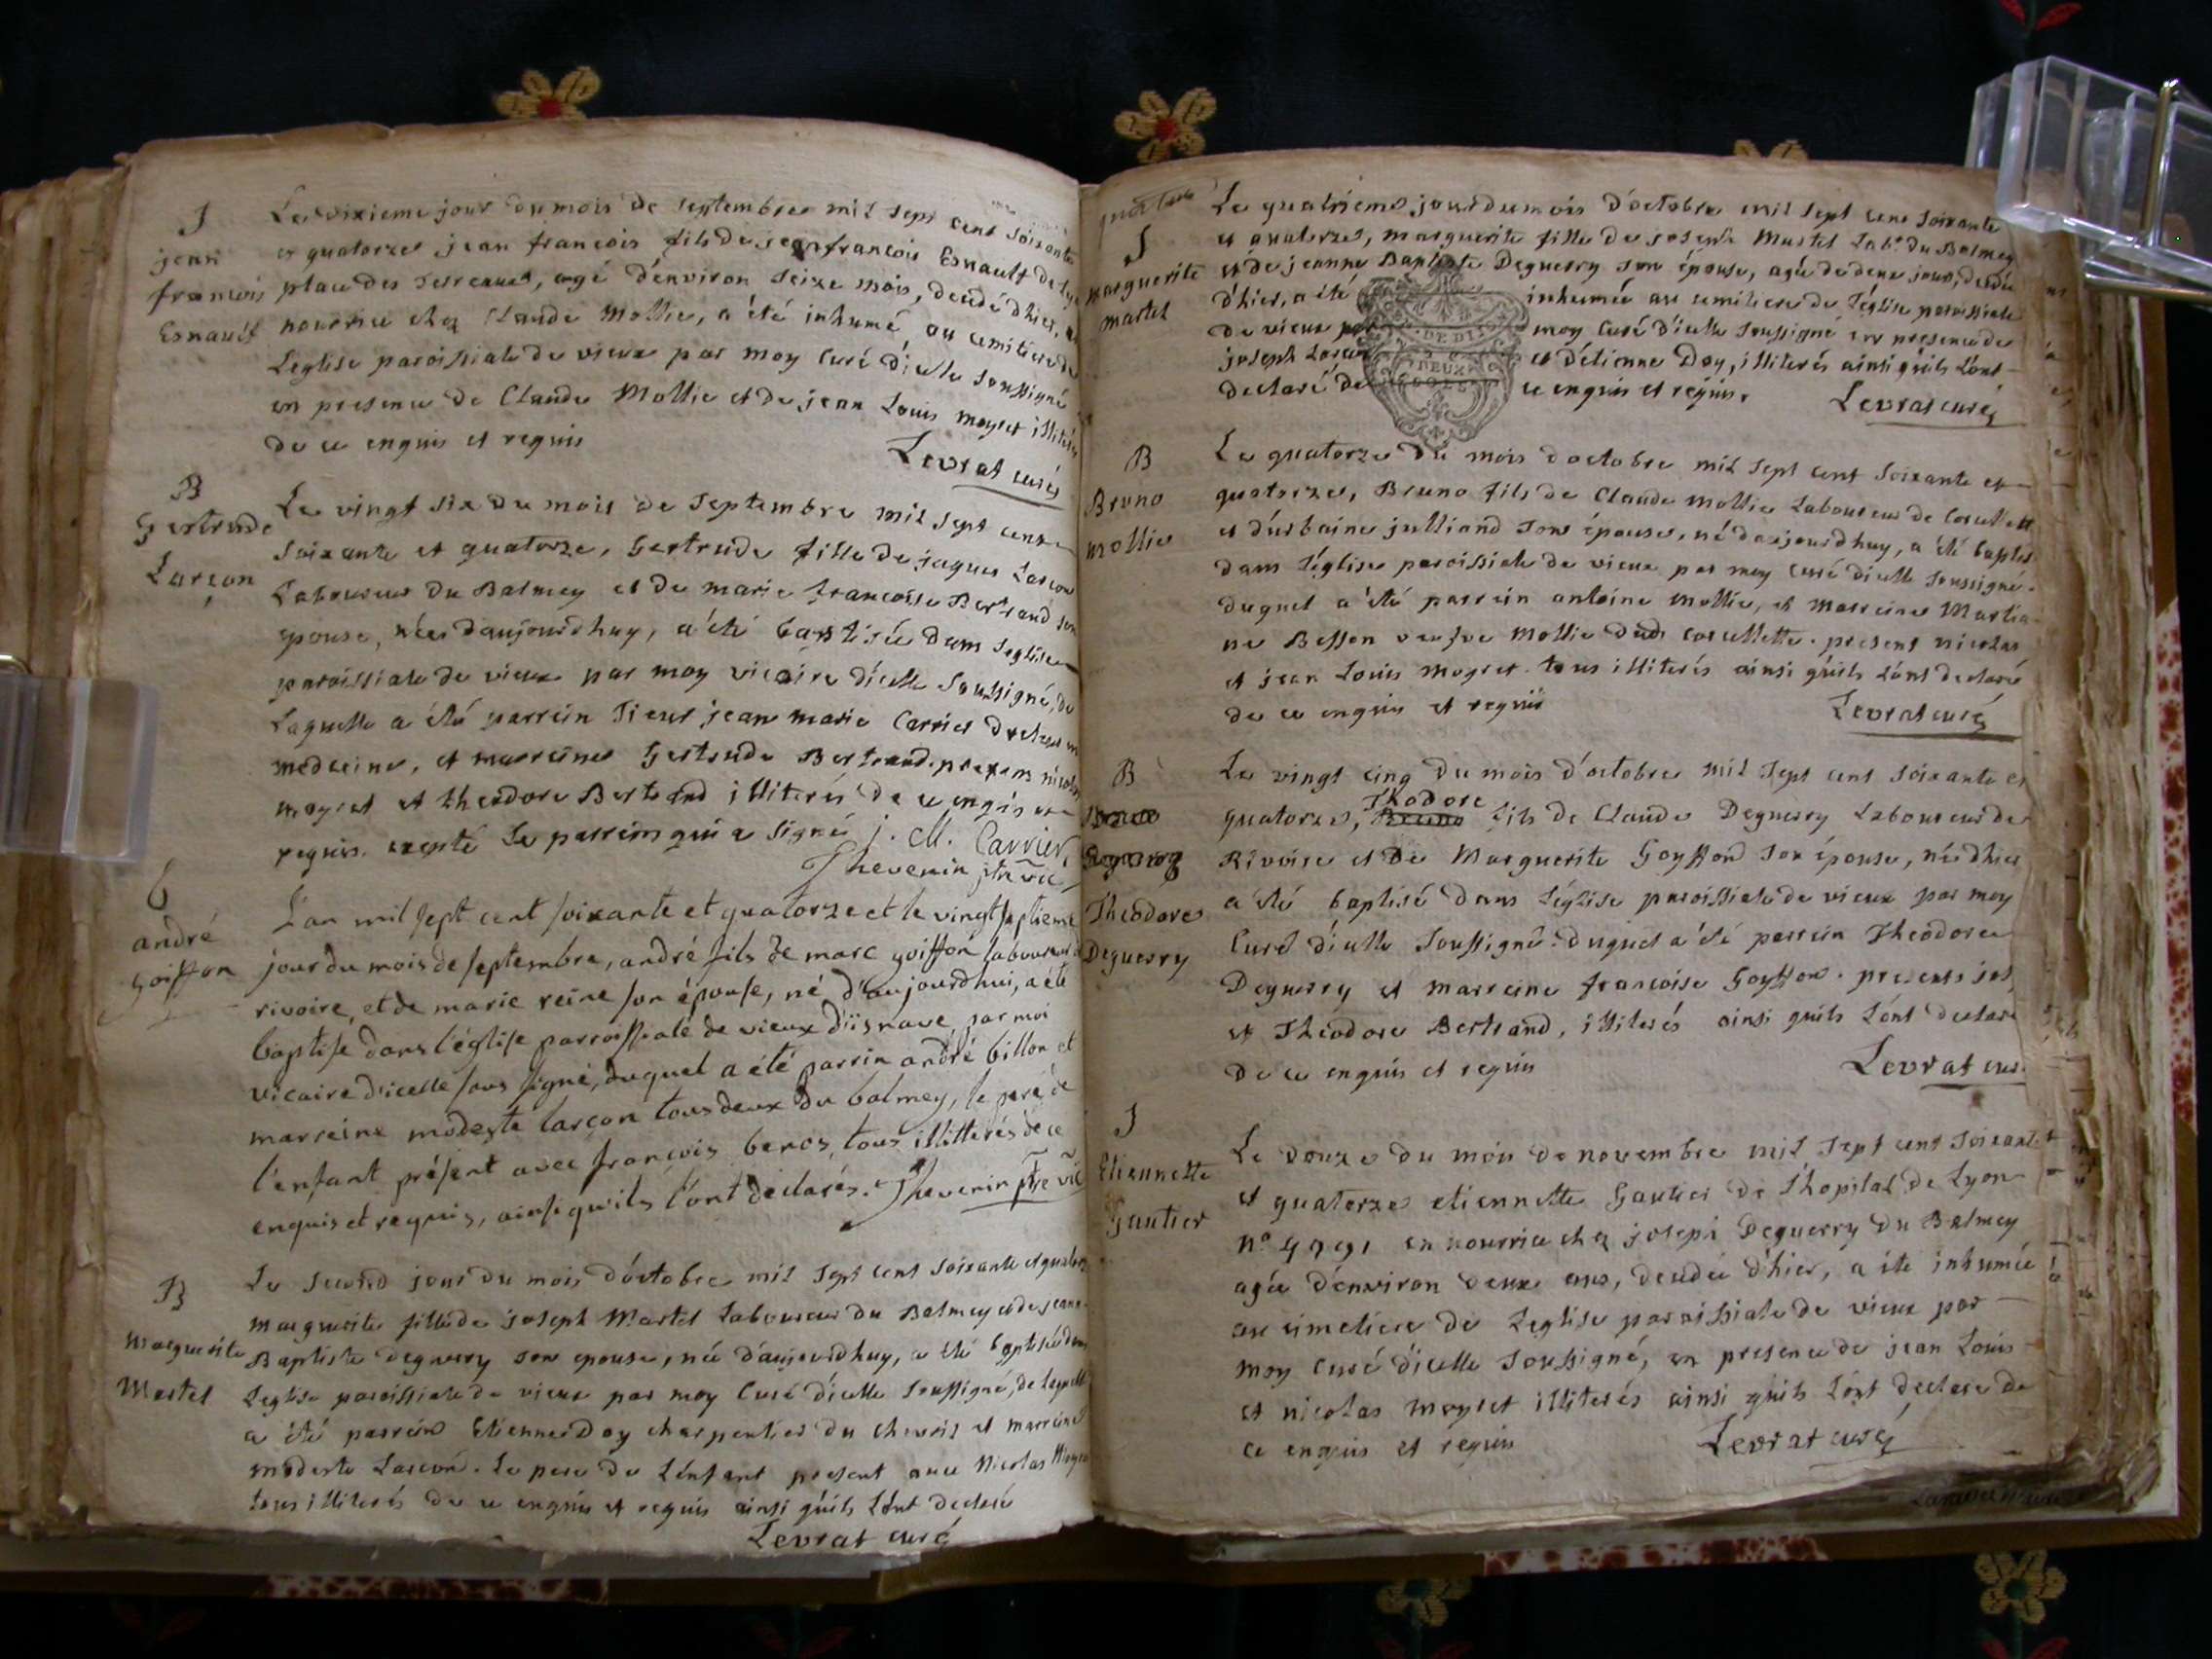 S
jean
francois
Esnault
Le sixieme jour du mois de septembre mil sept cent soixante
et quatorze jean francois fils de jean francois Esnault de Lyon
place des terreaux, agé d'environ seize mois, decedé d'hier, en
nourrice chez Claude Mollie, a été inhumé au cemitiere de
Leglise paroissiale de vieux par moy Curé d'icelle soussigné
en presence de Claude Mollie et de jean Louis moyret illiterés
de ce enquis et requis
Levrat curé
B
Gertrude
Larçon
Le vingt six du mois de septembre mil sept cent
soixante et quatorze, Gertrude fille de jaques Larcon
Laboureur du Balmey et de marie francoise Bertrand son
epouse, née d'aujourdhuy, a été baptisée dans l'eglise
paroissiale de vieux par moy vicaire d'icelle soussigné, de
Laquelle a été parrein sieur jean marie Carrier docteur en
medecine, et marreine Gertrude Bertrand. presens nicolas
moyret et theodore Bertrand illiterés de ce enquis et
requis. exepté Le parrein qui a signé J. M. Carrier
Thevenin ptre vic
b
andré
goiffon
L'an mil sept cent soixante et quatorze et le vingt septieme
jour du mois de septembre, andré fils de marc goiffon laboureur de
rivoire, et de marie reine son épouse, né d'aujourdhui, a été
baptisé dans l'église parroissiale de vieux d'iisnave par moi
vicaire d'icelle sous signé, duquel a été parrin andré billon et
marreine modeste larçon tous deux du balmey, le pere de
l'enfant présent avec françois beros, tous illitterés de ce
enquis et requis, ainsi qu'ils l'ont déclarés. Thevenin ptre vic
B
marguerite
Martel
Le second jour du mois d'octobre mil sept cent soixante et quatorze
marguerite fille de joseph Martel Laboureur du Balmey et de jeanne
Baptiste Deguerry son epouse, née d'aujourdhuy, a été baptisée dans
Leglise paroissiale de vieux par moy Curé d'icelle soussigné, de laquelle
a été parrein Etienne Doy charpentier du chevril et marreine
modeste Larcon. Le pere de L'enfant present avec Nicolas Moyret
tous illiterés de ce enquis et requis ainsi qu'ils L'ont declaré
Levrat curé
S
marguerite
martel
Le quatrieme jour du mois d'octobre mil sept cent soixante
et quatorze, marguerite fille de joseph Martel Labr. du Balmey
et de jeanne Baptiste Deguerry son épouse, agée de deux jours, decedée
d'hier, a été inhumée au cemitiere de l'église paroissiale
de vieux par moy Curé d'icelle soussigné en presence de
joseph Larcon et d'etienne Doy, illiterés ainsi qu'ils L'ont
declaré de ce enquis et requis.
Levrat curé
DE DI
DEUX
SOLS
B
Bruno
mollie
Le quatorze du mois d'octobre mil sept cent soixante et
quatorze, Bruno fils de Claude mollie Laboureur de Corcellette
et d'urbaine julliand son épouse, né d'aujourdhuy, a été baptisé
dans l'église paroissiale de vieux par moy curé d'icelle soussigné.
duquel a été parrein antoine mollie, et marreine Martia
ne Besson veufve Mollie dudt corcellette. present nicolas
et jean Louis moyret. tous illiterés ainsi qu'ils L'ont declaré
de ce enquis et requis
Levrat curé
B
Bruno
Deguerry
Theodore
Deguerry
Le vingt cinq du mois d'octobre mil sept cent soixante et
Thodore
quatorze, Bruno fils de Claude Deguerry Laboureur de
Rivoire et de Marguerite Goyffond son épouse, né d'hier
a été baptisé dans L'église paroissiale de vieux par moy
Curé d'icelle soussigné. duquel a été parrein Theodore
Deguerry et marreine francoise Goyffon. presents jos
et Theodore Bertrand, illiterés ainsi qu'ils L'ont declaré
de ce enquis et requis
Levrat cur
S
Etiennette
Gautier
Le douze du mois de novembre mil sept cent soixante
et quatorze etiennette Gautier de l'hopital de Lyon
en nourrice chez joseph Deguerry du Balmey
agée d'environ deux ans, decedée d'hier, a été inhumée
au cimetiere de Leglise paroissiale de vieux par
moy Curé d'icelle soussigné, en presence de jean Louis
et nicolas moyret illiterés ainsi qu'ils L'ont declaré de
ce enquis et requis
Levrat curé